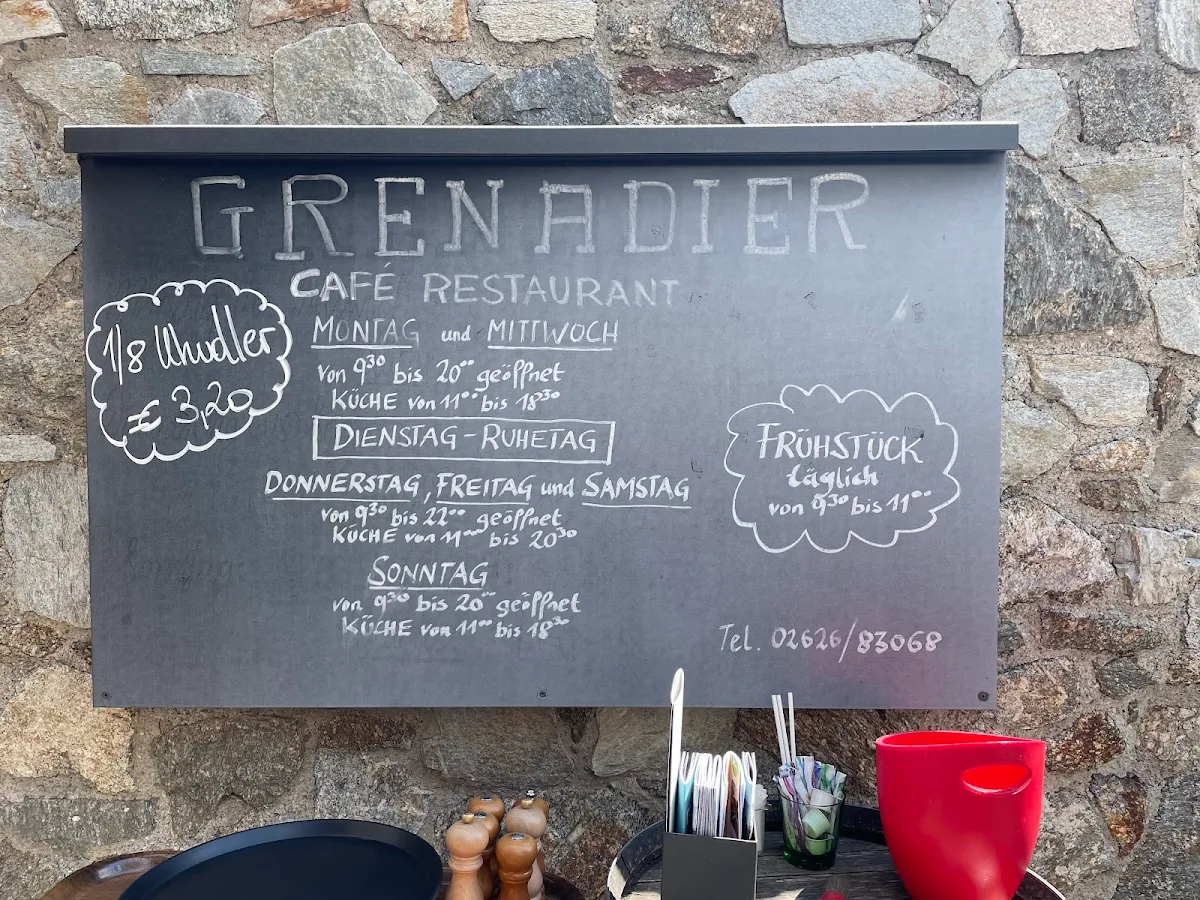 GRENADIER
CAFÉ RESTAURANT
1/8 Uhudler
€ 3,20
MONTAG und MITTWOCH
von 9³⁰ bis 20⁰⁰ geöffnet
KÜCHE von 11⁰⁰ bis 18³⁰
DIENSTAG - RUHETAG
DONNERSTAG, FREITAG und SAMSTAG
von 9³⁰ bis 22⁰⁰ geöffnet
KÜCHE von 11⁰⁰ bis 20³⁰
SONNTAG
von 9³⁰ bis 20⁰⁰ geöffnet
KÜCHE von 11⁰⁰ bis 18³⁰
FRÜHSTÜCK
täglich
von 9³⁰ bis 11⁰⁰
Tel. 02626/83068